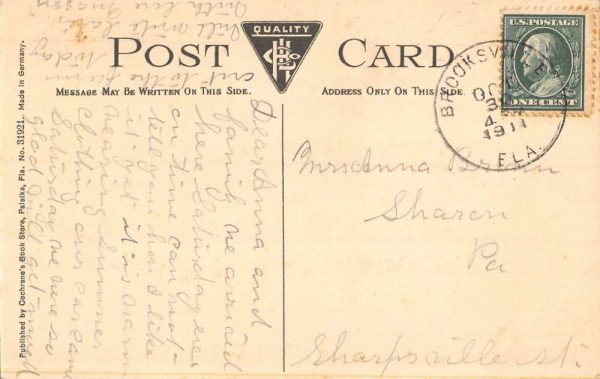 POST CARD
QUALITY
MESSAGE MAY BE WRITTEN ON THIS SIDE.
ADDRESS ONLY ON THIS SIDE.
U.S. POSTAGE
ONE CENT
BROOKSVILLE
OCT
31
4
1911
FLA.
Published by Cochrane's Book Store, Palatka, Fla. No. 31921. Made in Germany.
Dear Anna and
family we arrived
here Saturday eve
on time can not
tell you how I like
it yet it is warm
wearing summer
clothing our car came
Saturday we were so
glad
out to the farm
today
will write later
Mrs Anna Brown
Sharon
Pa
Sharpsville St.